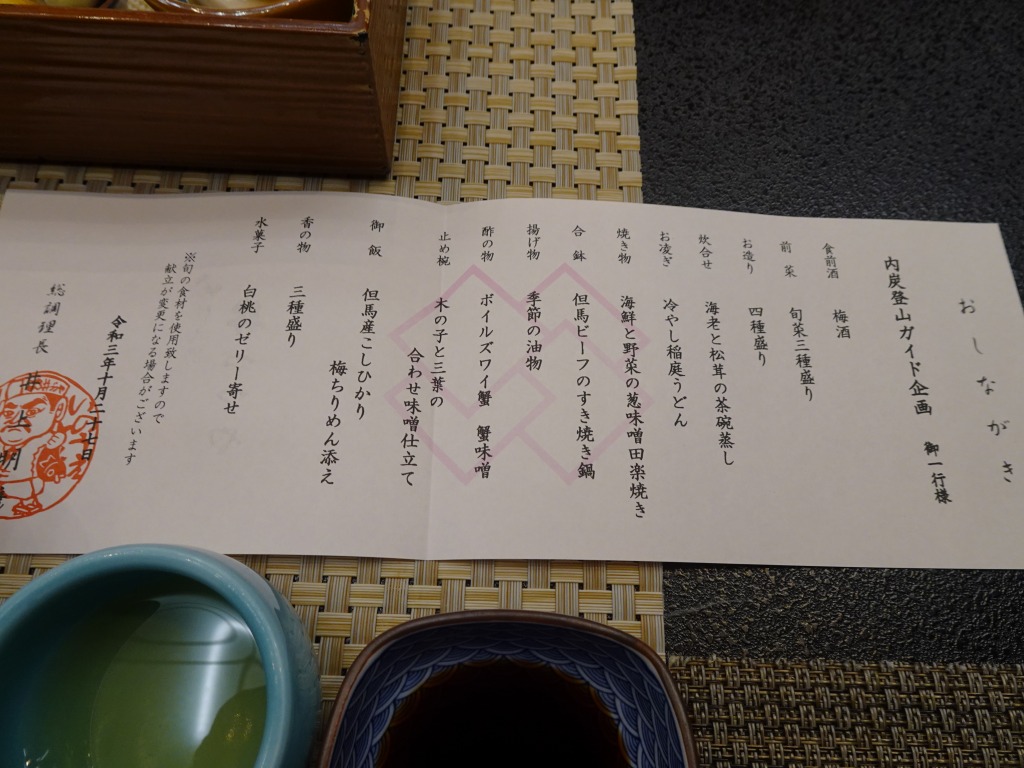 おしながき
内炭登山ガイド企画 御一行様
食前酒 梅酒
前菜 旬菜三種盛り
お造り 四種盛り
炊合せ 海老と松茸の茶碗蒸し
お凌ぎ 冷やし稲庭うどん
焼き物 海鮮と野菜の葱味噌田楽焼き
合鉢 但馬ビーフのすき焼き鍋
揚げ物 季節の油物
酢の物 ボイルズワイ蟹 蟹味噌
止め椀 木の子と三葉の
合わせ味噌仕立て
御飯 但馬産こしひかり
梅ちりめん添え
香の物 三種盛り
水菓子 白桃のゼリー寄せ
※旬の食材を使用致しますので
献立が変更になる場合がございます
令和三年十月二十七日
総調理長 井上明